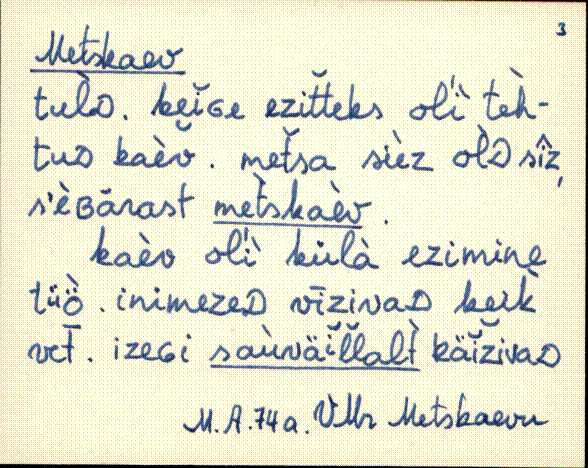 3
Metskaev
tulD. kęĭGe eziťťeks ol'ì tèh-
tuD kaèv̆. meťsa sìèz òlD sîz,
s'èBārast mètskaèv.
kaèv ol'ì külà ezimine
tüö̀. inimezeD vīzivaD keik̀
vet̄. izeGi saùnäĭl̆l̆alt̀ käĭz̆ivaD
M.A. 74 a. VMr Metskaevu